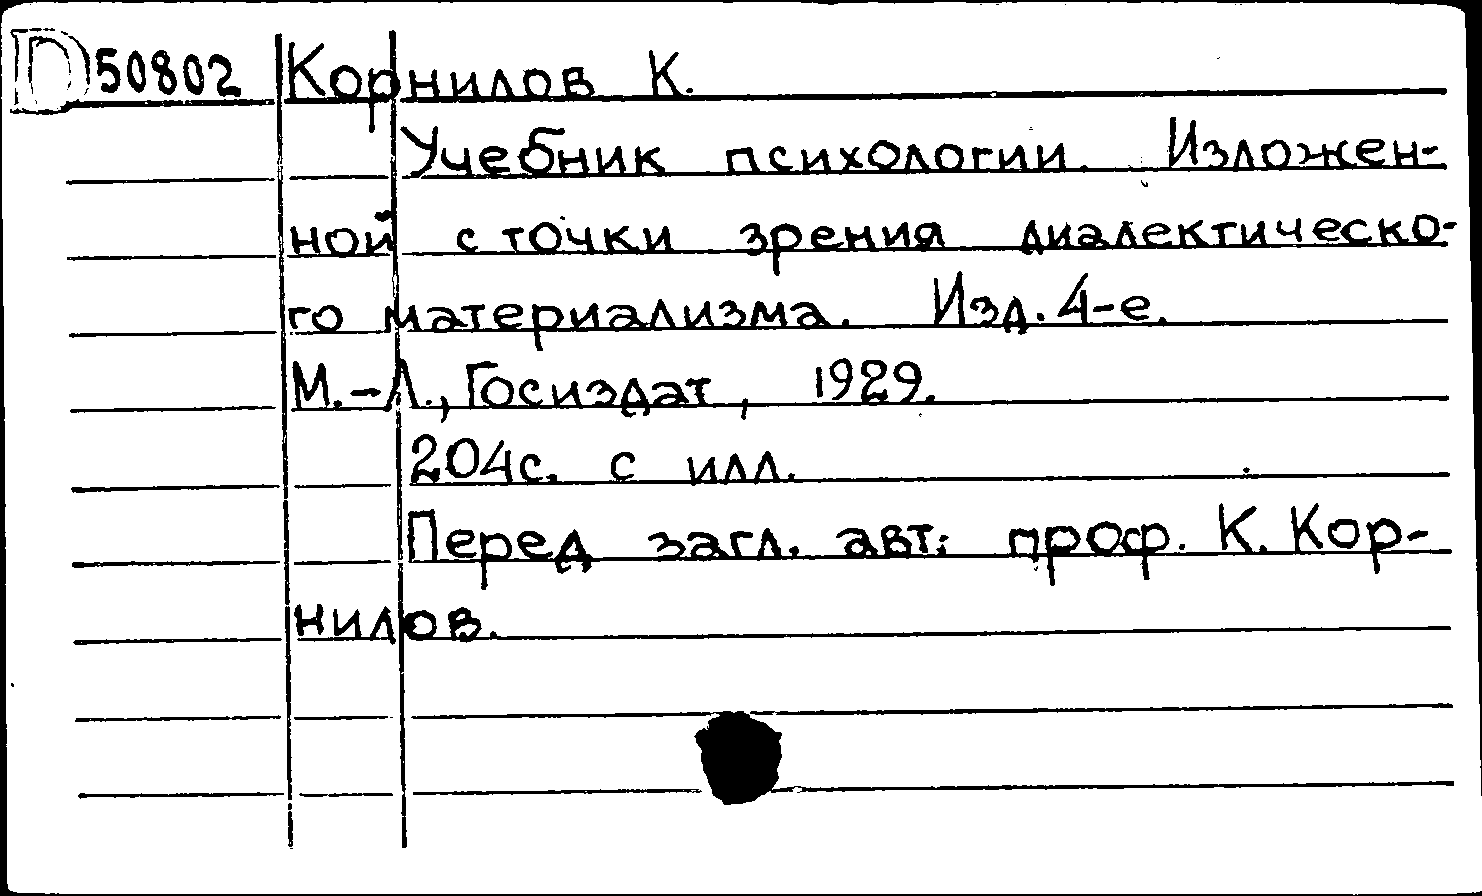 D 50802 Корнилов К.
Учебник психологии. Изложен-
ной с точки зрения диалектическо-
го материализма. Изд. 4-е.
М.-Л., Госиздат, 1929.
204с. с илл.
Перед загл. авт: проф. К. Кор-
нилов.